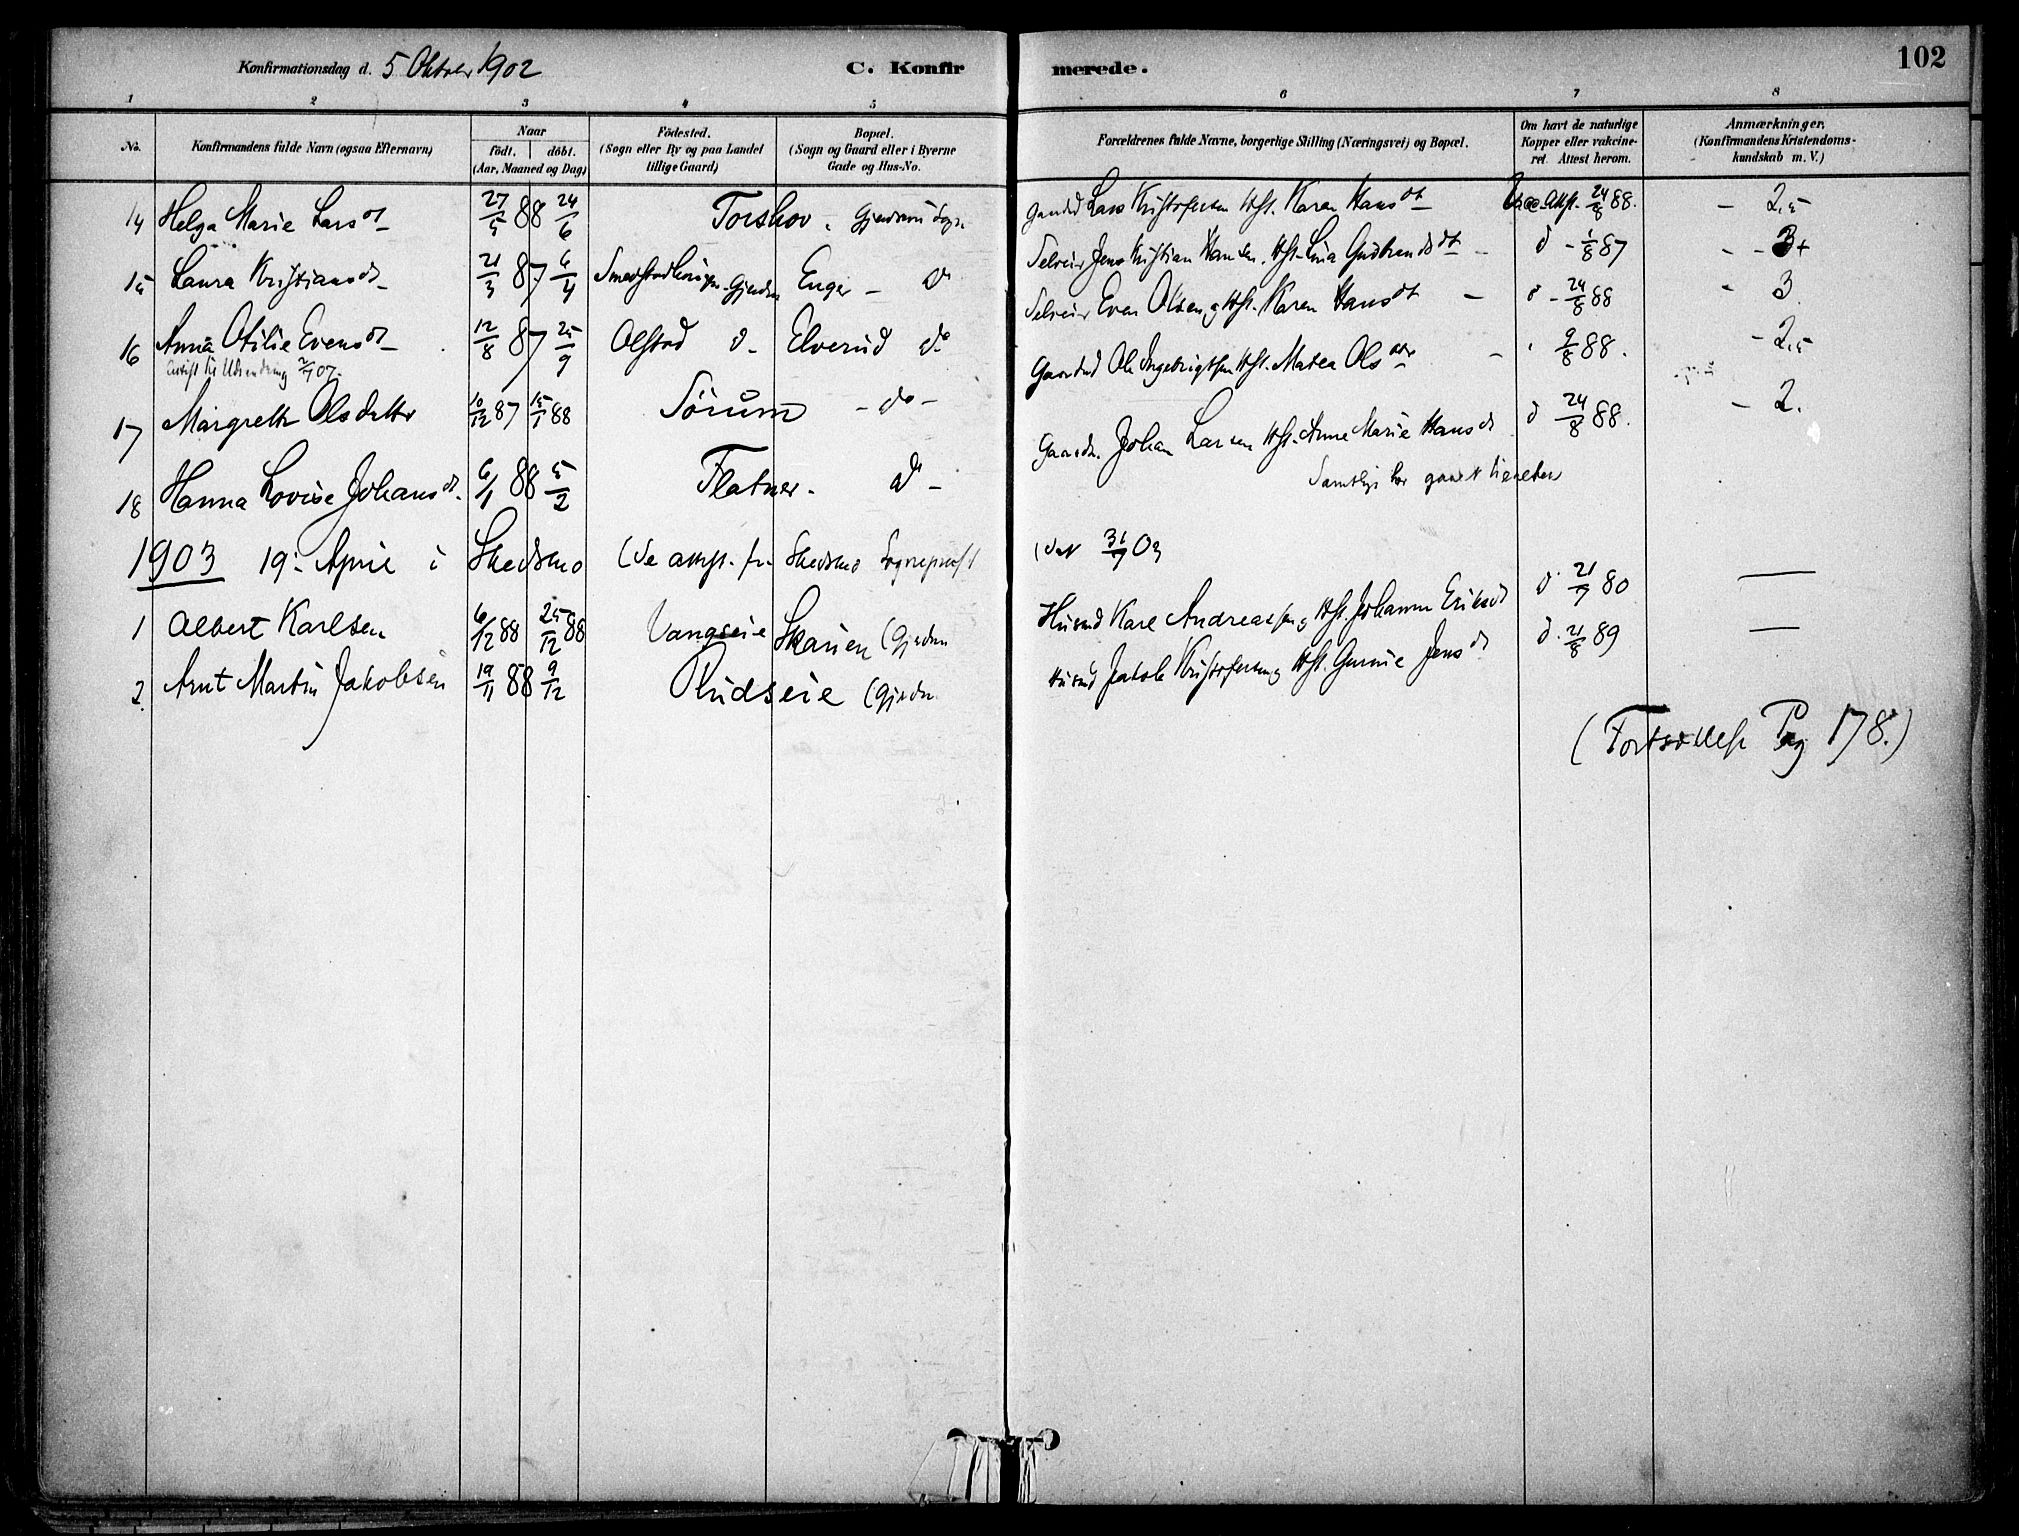 Konfirmationsdag d. 5 Oktober 1902 C. Konfirmerede. 102
1 2 3 4 5 6 7 8
No. Konfirmandens fulde Navn (ogsaa Efternavn) Naar födt. döbt. (Aar, Maaned og Dag) Födested. (Sogn eller By og paa Landet tillige Gaard) Bopæl. (Sogn og Gaard eller i Byerne Gade og Hus-No. Forældrenes fulde Navne, borgerlige Stilling (Næringsvei) og Bopæl. Om havt de naturlige Kopper eller vakcineret. Attest herom. Anmærkninger. (Konfirmandens Kristendomskundskab m. V.)
14 Helga Marie Larsdt 27/5 88 24/6 Torshov. Gjerdrum Sogn Gaardbr Lars Kristofersen Hst. Karen Hansdt Vacc. Attst. 24/8 88. - 2,5
15 Laura Kristiansdt 21/3 87 6/4 Enger - do Selveier Jens Kristian Hansen. Hst. Lina Gudbrandsdt - d - 1/8 87 - - 3+
16 Anna Otilie Evensdt 12/8 87 25/9 Olstad d - Elverud do Selveier Even Olsen og Hst. Karen Hansdt - d - 24/8 88 - 3
Attest til Udvandring 2/4 07.
17 Margrethe Olsdatter 10/12 87 15/1 88 Sörum - do - Gaardbr Ole Ingebrigtsen Hst. Matea Olsdtr - 9/8 88. - 2,5
18 Hanna Lovise Johansdt. 6/1 88 5/2 Flatner. do - Gaardbr. Johan Larsen Hst. Anne Marie Hansdt d 24/8 88. - 2.
Samtlige har
1903 19. April i Skedsmo (Se attst. fr. Skedsmo Sogneprest 03
1 Albert Karlsen 6/12 88 25/12 88 Vangseie Skarien (Gjerdrum Husmd Karl Andreassen og Hst. Johanne Eriksdt d. 21/7 80 —
2. Arnt Martin Jakobsen 19/11 88 9/12 Rudseie (Gjerdrum Husmd Jakob Kristofersen og Hst. Gunnie Jensdt d. 21/8 89 —
(Fortsættelse Pag 178.)